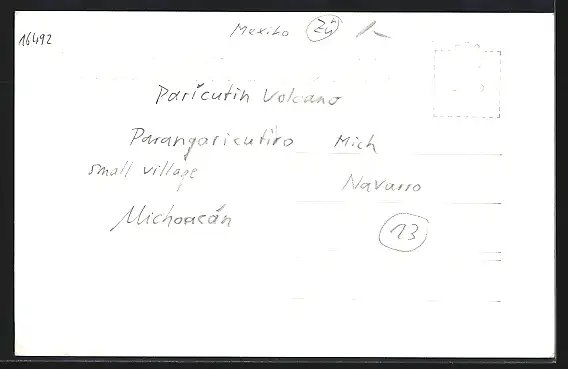 16492
Mexiko Zü
Paricutin Volcano
Parangaricutiro Mich
small village
Navarro
Michoacán
13